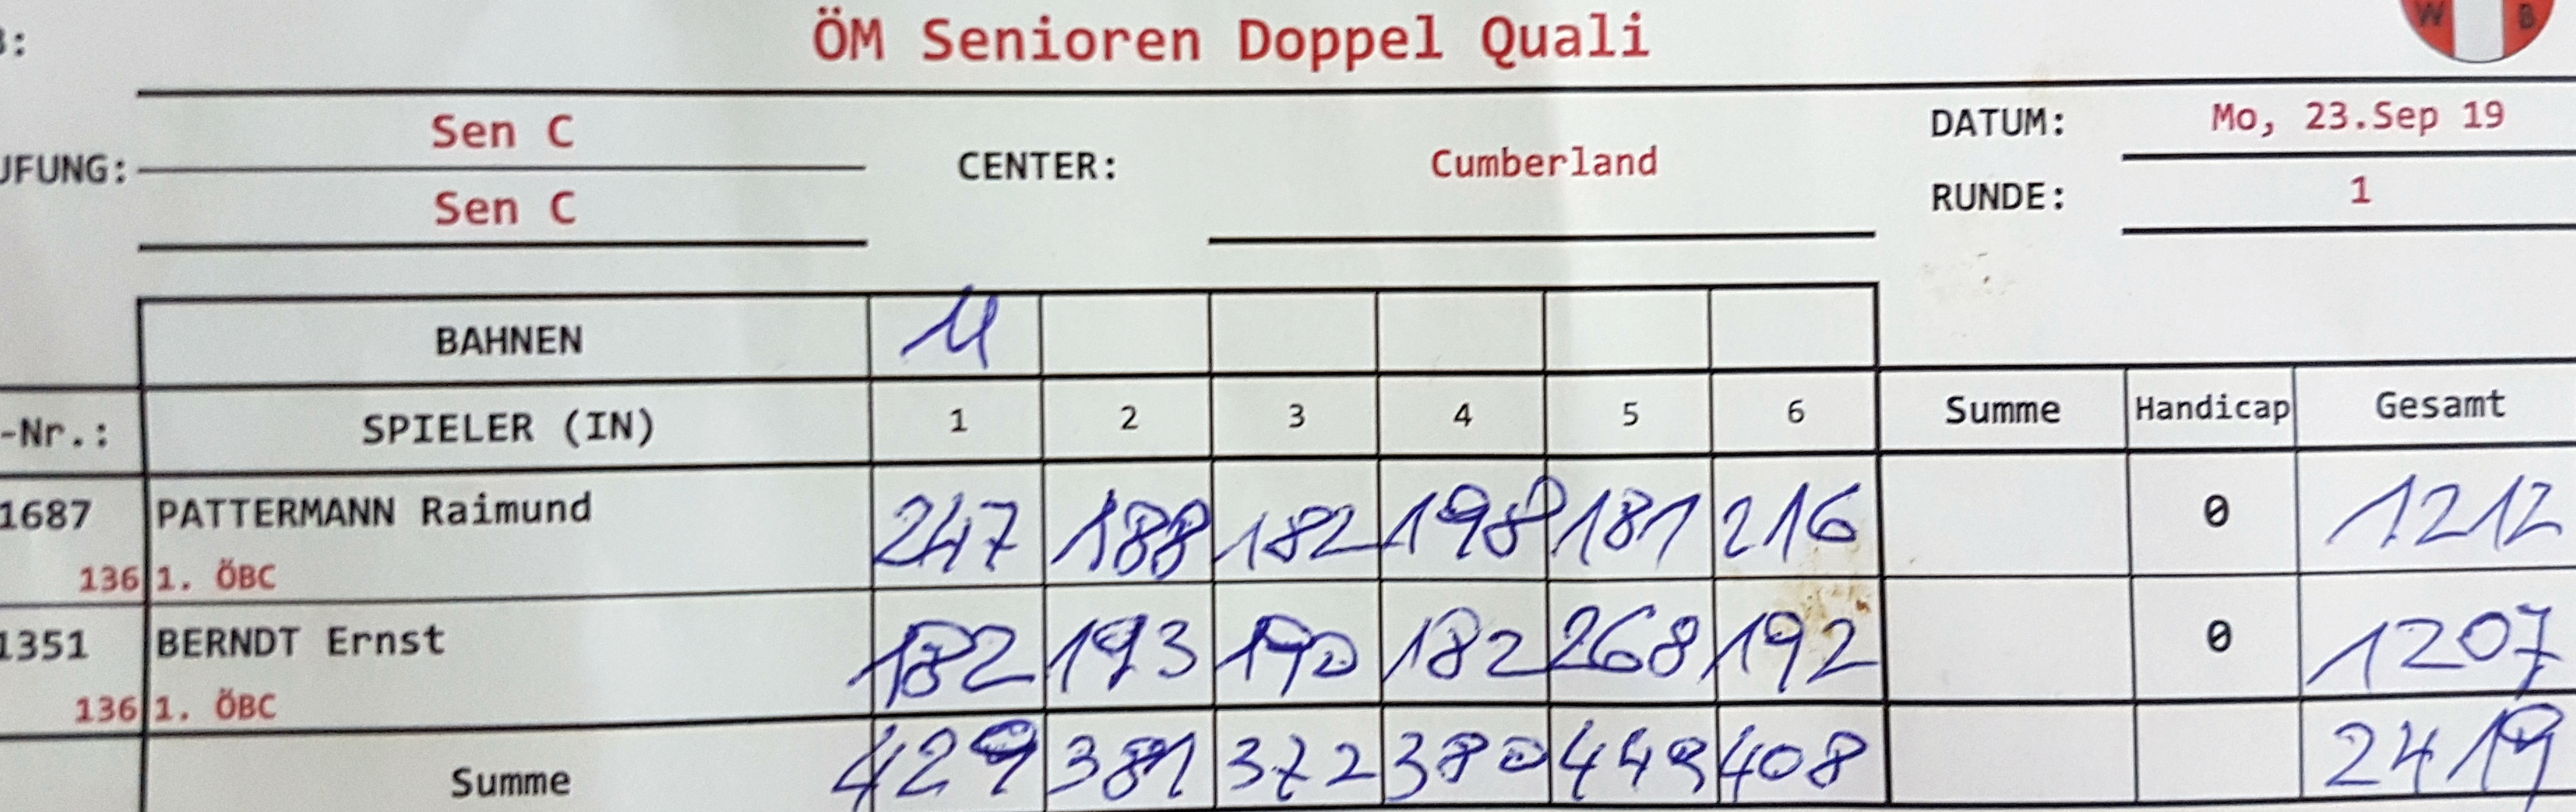 B:
ÖM Senioren Doppel Quali
W B
Sen C
DATUM: Mo, 23.Sep 19
UFUNG: CENTER: Cumberland
Sen C
RUNDE: 1
BAHNEN 11
-Nr.: SPIELER (IN) 1 2 3 4 5 6 Summe Handicap Gesamt
1687 PATTERMANN Raimund 247 188 182 198 181 216 0 1212
136 1. ÖBC
1351 BERNDT Ernst 182 193 190 182 268 192 0 1207
136 1. ÖBC
Summe 429 381 372 380 449 408 2419